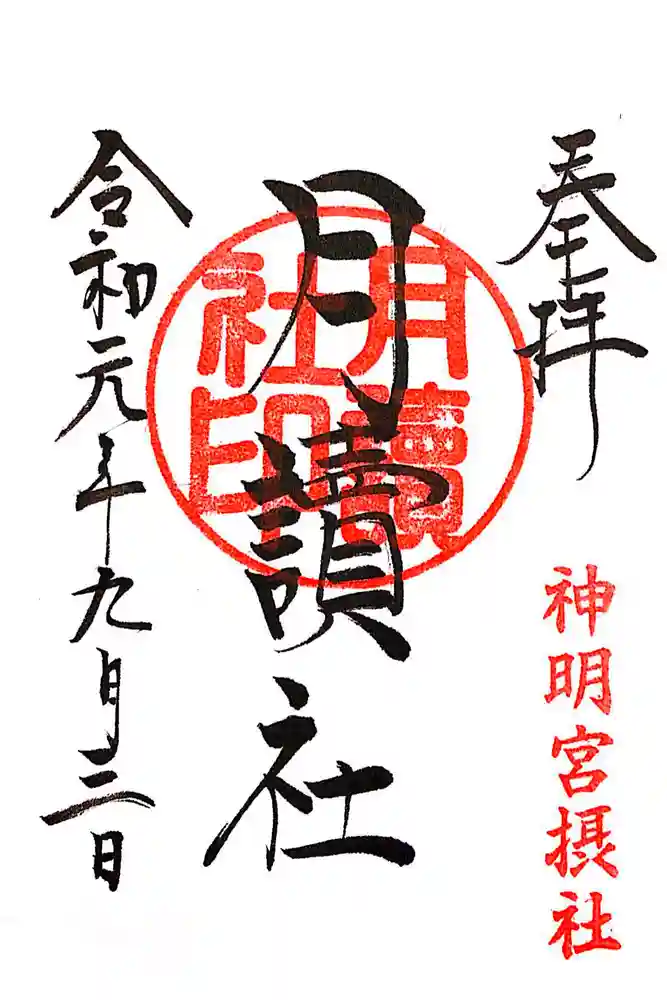 奉拝
神明宮摂社
月讀社
月讀社印
令和元年九月三日